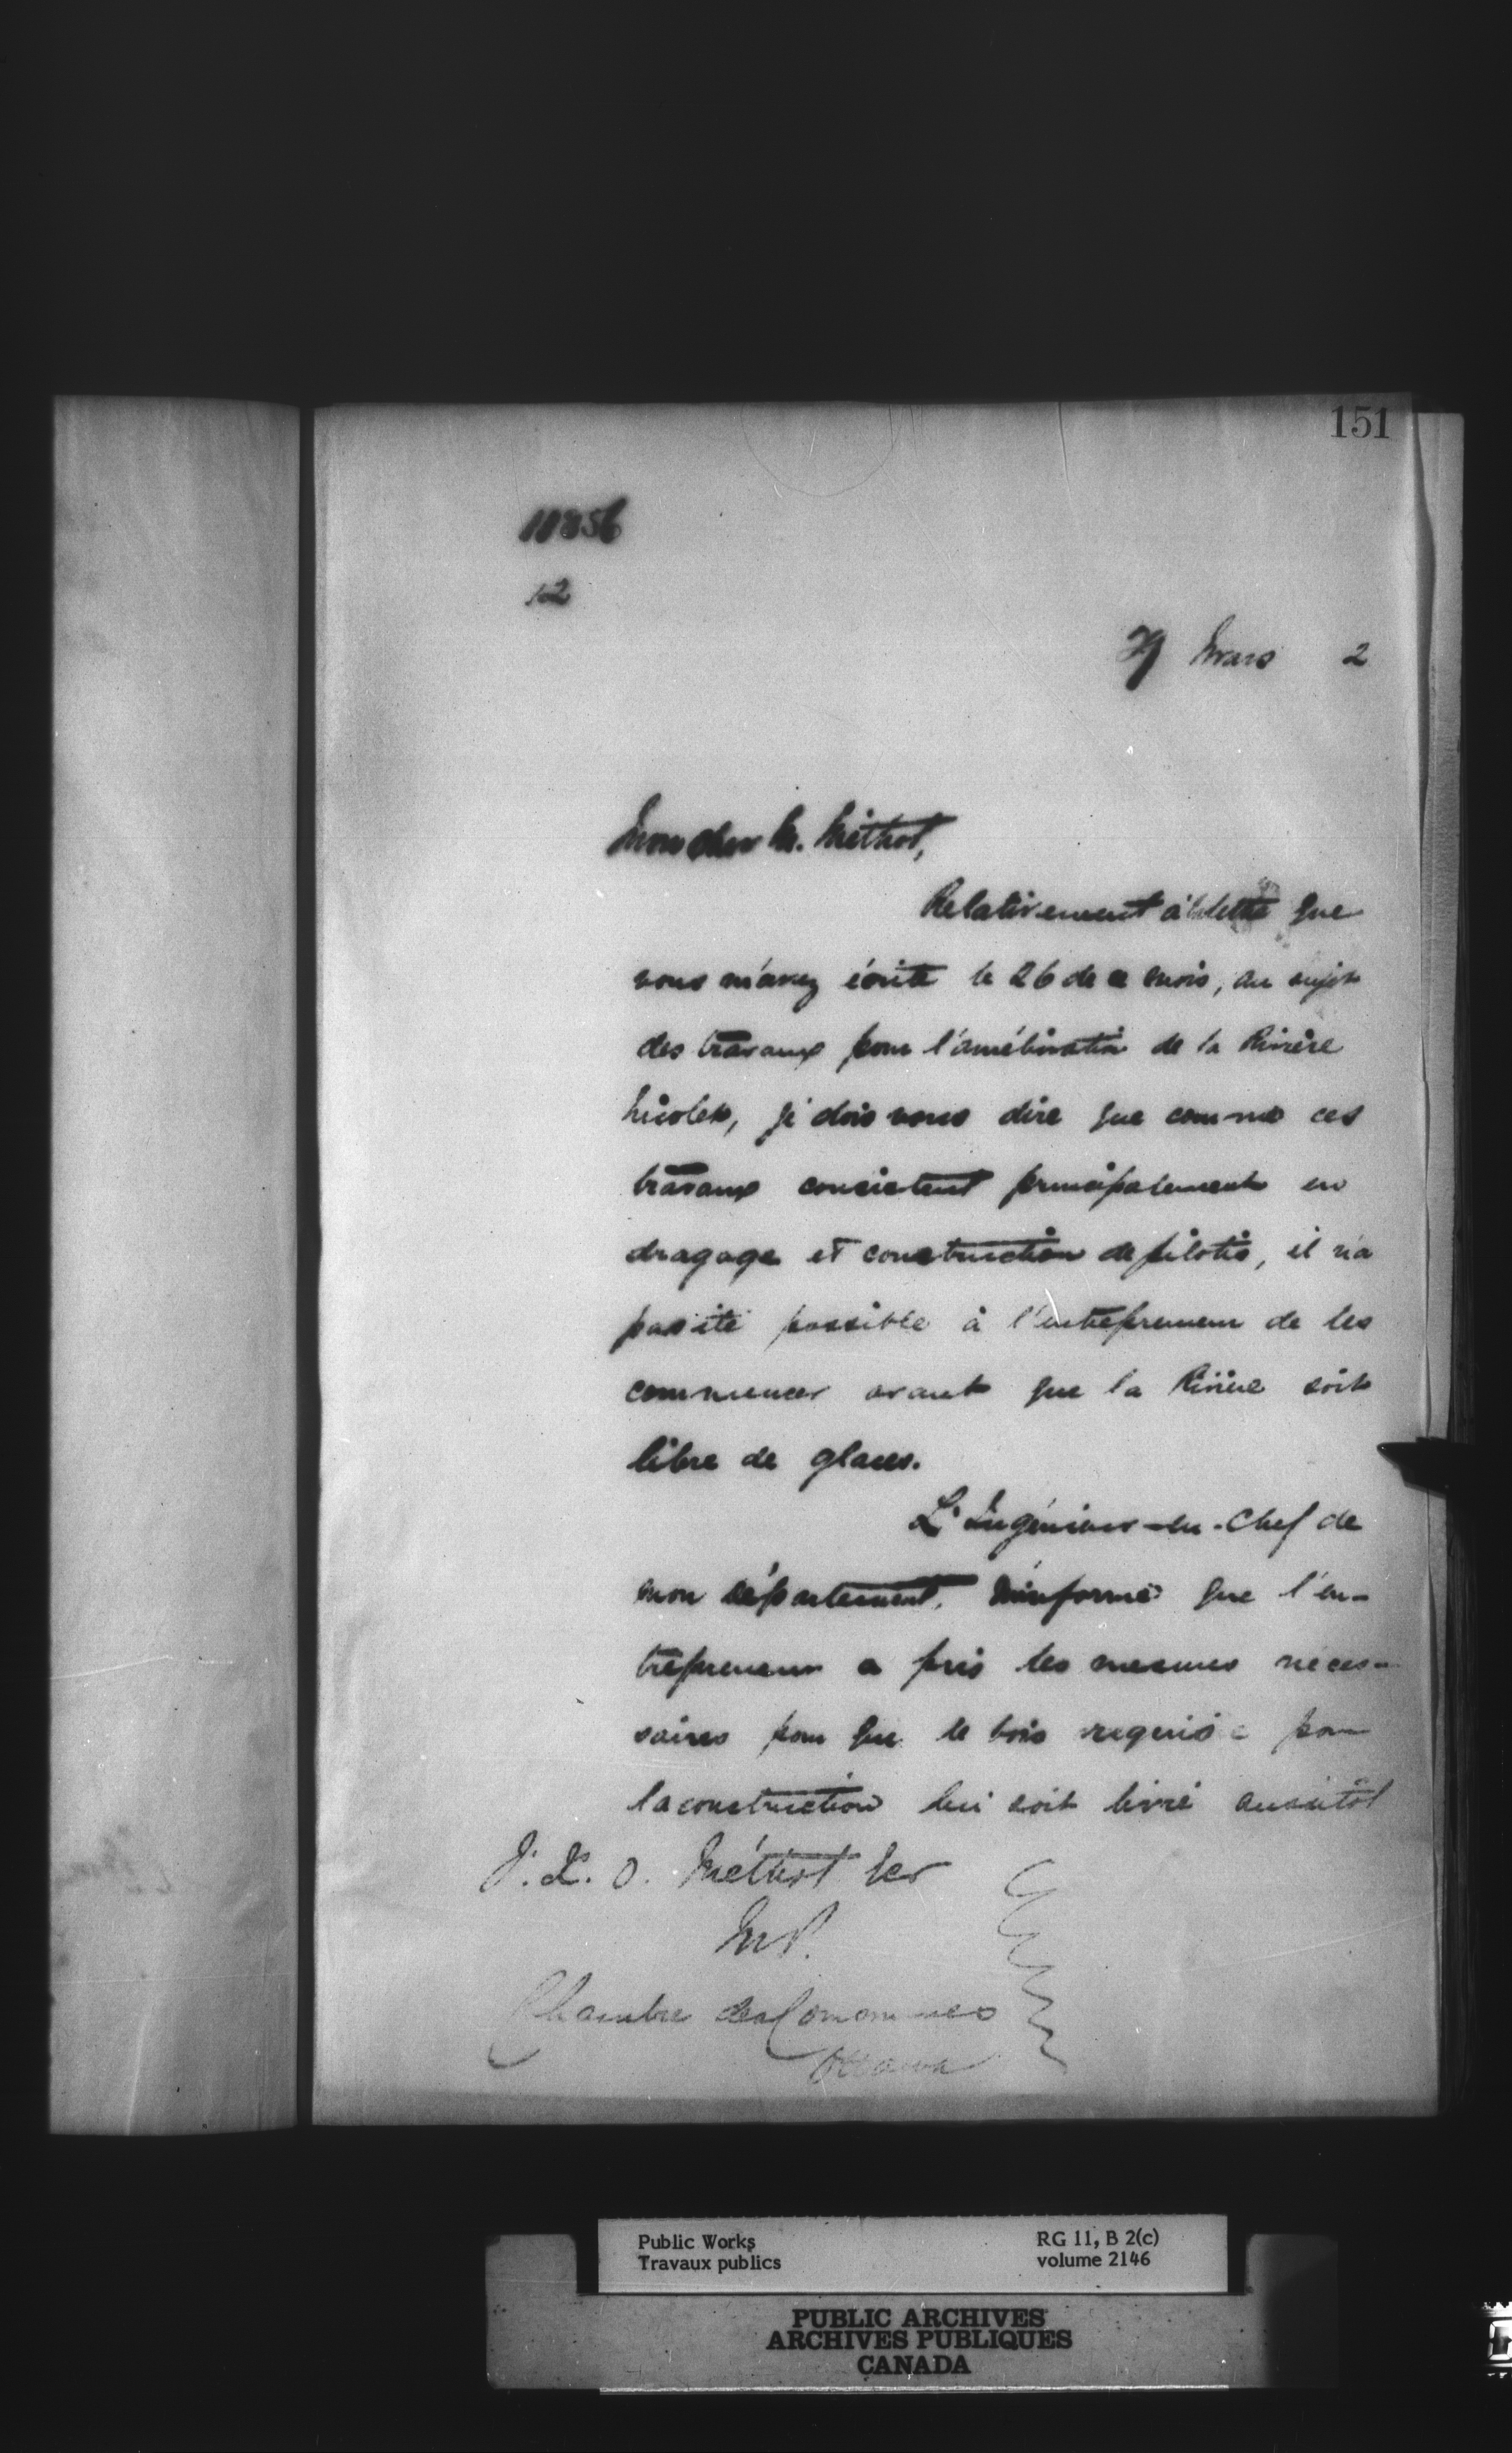 151
10856
12
29 Mars 2
Mon cher M. Méthot,
Relativement à la lettre que
vous m'avez écrite le 26 de ce mois, au sujet
des travaux pour l'amélioration de la Rivière
Nicolet, je dois vous dire que comme ces
travaux consistent principalement en
dragage et construction de pilotis, il n'a
pas été possible à l'entrepreneur de les
commencer avant que la Rivière soit
libre de glaces.
L'Ingénieur-en-Chef de
mon département, m'informe que l'en-
trepreneur a pris les mesures néces-
saires pour que le bois requis pour
la construction lui soit livré aussitôt
F. X. O. Méthot Ecr
M.P.
Chambre des Communes
Ottawa
Public Works
Travaux publics
RG 11, B 2(c)
volume 2146
PUBLIC ARCHIVES
ARCHIVES PUBLIQUES
CANADA